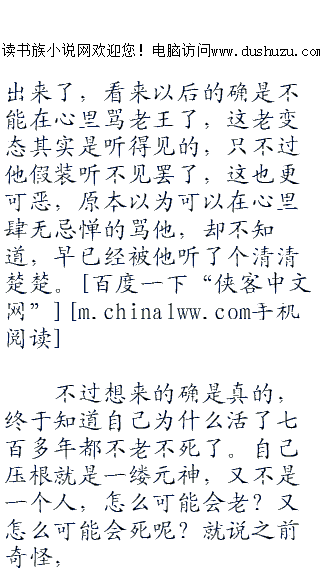 读书族小说网欢迎您！电脑访问www.dushuzu.com
出来了，看来以后的确是不
能在心里骂老王了，这老变
态其实是听得见的，只不过
他假装听不见罢了，这也更
可恶，原本以为可以在心里
肆无忌惮的骂他，却不知
道，早已经被他听了个清清
楚楚。[百度一下“侠客中文
网”][m.chinalww.com手机
阅读]
不过想来的确是真的，
终于知道自己为什么活了七
百多年都不老不死了。自己
压根就是一缕元神，又不是
一个人，怎么可能会老？又
怎么可能会死呢？就说之前
奇怪，